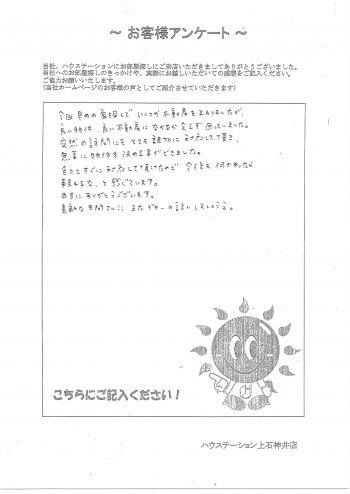 ～ お客様アンケート ～
当社、ハウステーションにお部屋探しにご来店いただきましてありがとうございました。
当社へのお部屋探しのきっかけや、実際にお越しいただいての感想をご記入ください。
ご協力お願いいたします。
(当社ホームページのお客様の声としてご紹介させていただきます)
今回 早めの 家探しで いくつか不動産をまわりましたが、
良い物件、良い不動産になかなか会えず困っていました。
突然の訪問にも とても親切に 対応して頂き、
無事に物件を決める事ができました。
色々とすぐに対応して頂けたので 今後も 何かあれば
頼れるな、と感じています。
本当にありがとうございます。
またギターの話しましょうね。
こちらにご記入ください！
ハウステーション上石神井店